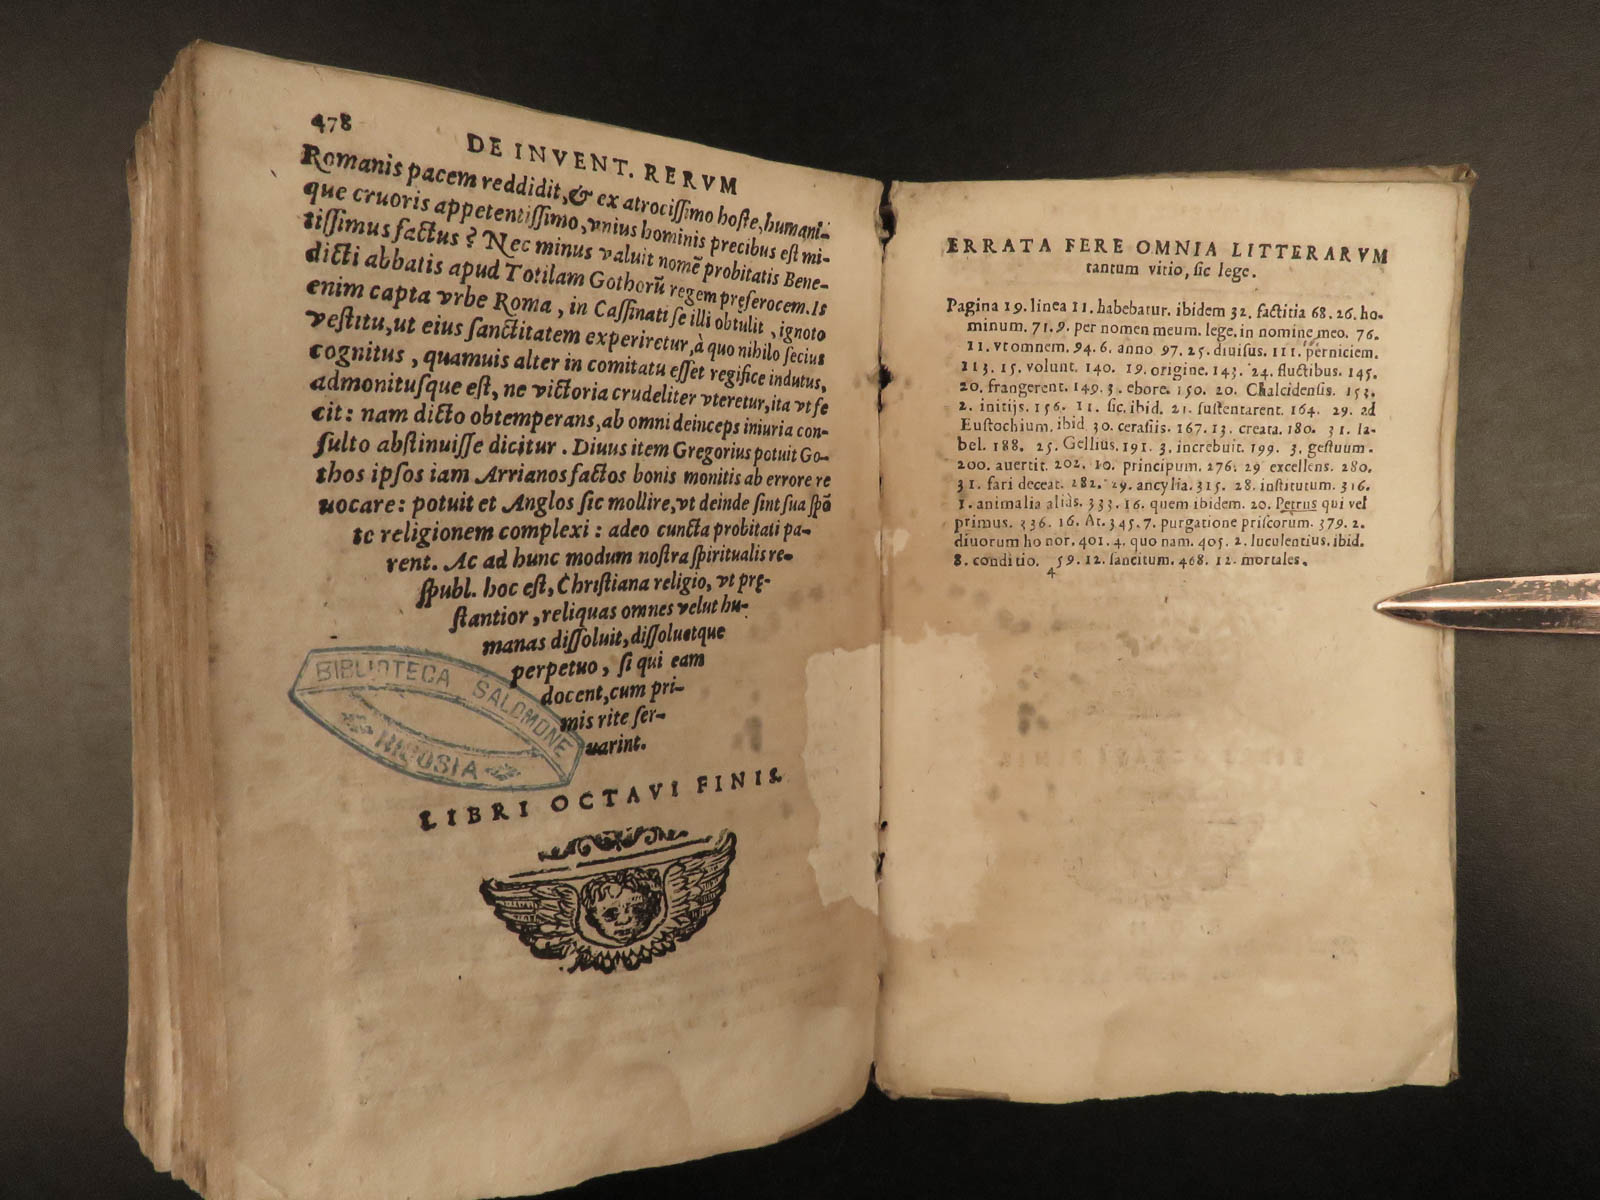 478
DE INVENT. RERVM
Romanis pacem reddidit, & ex atrocissimo hoste, humani-
que cruoris appetentissimo, vnius hominis precibus est mi-
tissimus factus? Nec minus valuit nomẽ probitatis Bene-
dicti abbatis apud Totilam Gothorũ regem pręferocem. Is
enim capta vrbe Roma, in Cassinati se illi obtulit, ignoto
vestitu, ut eius sanctitatem experiretur, à quo nihilo secius
cognitus, quamuis alter in comitatu esset regifice indutus,
admonitusque est, ne victoria crudeliter vteretur, ita vt fe
cit: nam dicto obtemperans, ab omni deinceps iniuria con-
sulto abstinuisse dicitur. Diuus item Gregorius potuit Go-
thos ipsos iam Arrianos factos bonis monitis ab errore re
uocare: potuit et Anglos sic mollire, vt deinde sint sua spõ
te religionem complexi: adeo cuncta probitati pa-
rent. Ac ad hunc modum nostra spiritualis re-
spubl. hoc est, Christiana religio, vt prę-
stantior, reliquas omnes velut hu-
manas dissoluit, dissoluetque
perpetuo, si qui eam
docent, cum pri-
mis rite ser-
uarint.
BIBLIOTECA SALOMONE
NICOSIA
LIBRI OCTAVI FINIS
ERRATA FERE OMNIA LITTERARVM
tantum vitio, sic lege.
Pagina 19. linea 11. habebatur. ibidem 32. factitia 68. 26. ho-
minum. 71. 9. per nomen meum. lege. in nomine meo. 76.
11. vt omnem. 94. 6. anno 97. 25. diuisus. 111. perniciem.
113. 15. volunt. 140. 19. origine. 143. 24. fluctibus. 145.
20. frangerent. 149. 3. ebore. 150. 20. Chalcidensis. 153.
2. initijs. 156. 11. sic. ibid. 21. sustentarent. 164. 29. ad
Eustochium. ibid 30. cerasiis. 167. 13. creata. 180. 31. la-
bel. 188. 25. Gellius. 191. 3. increbuit. 199. 3. gestuum.
200. auertit. 202. 10. principum. 276. 29 excellens. 280.
31. fari deceat. 282. 29. ancylia. 315. 28. institutum. 316.
1. animalia aliàs. 333. 16. quem ibidem. 20. Petrus qui vel
primus. 336. 16. At. 345. 7. purgatione priscorum. 379. 2.
diuorum ho nor. 401. 4. quo nam. 405. 2. luculentius. ibid.
8. conditio. 459. 12. sancitum. 468. 12. mortales.